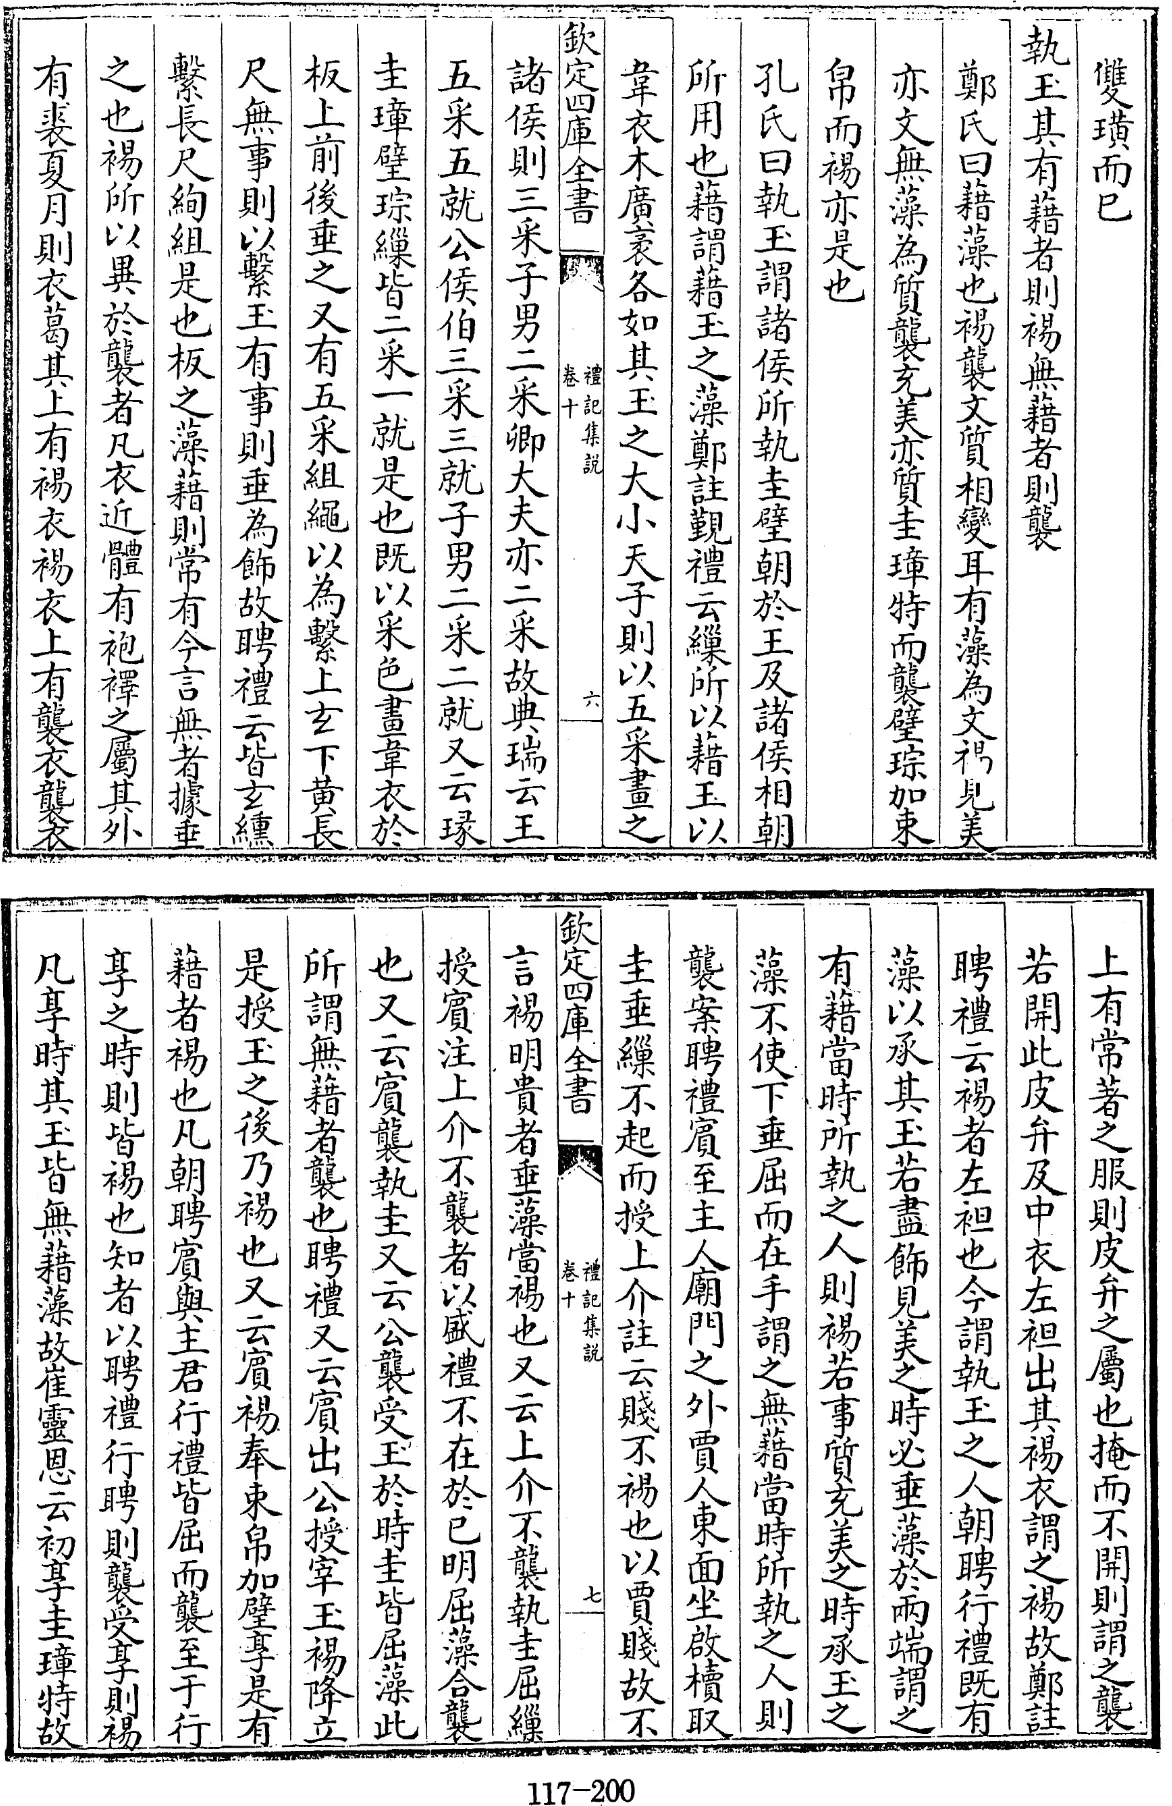 雙璜而已
執玉其有藉者則裼無藉者則襲
鄭氏曰藉藻也裼襲文質相變耳有藻為文裼見美
亦文無藻為質襲充美亦質圭璋特而襲璧琮加束
帛而裼亦是也
孔氏曰執玉謂諸侯所執圭璧朝於王及諸侯相朝
所用也藉謂藉玉之藻鄭註覲禮云繅所以藉玉以
韋衣木廣袤各如其玉之大小天子則以五采畫之
欽定四庫全書
禮記集說
卷十
六
諸侯則三采子男二采卿大夫亦二采故典瑞云王
五采五就公侯伯三采三就子男二采二就又云瑑
圭璋璧琮繅皆二采一就是也既以采色畫韋衣於
板上前後垂之又有五采組繩以為繫上玄下黃長
尺無事則以繫玉有事則垂為飾故聘禮云皆玄纁
繫長尺絢組是也板之藻藉則常有今言無者據垂
之也裼所以異於襲者凡衣近體有袍襗之屬其外
有裘夏月則衣葛其上有裼衣裼衣上有襲衣襲衣
上有常著之服則皮弁之屬也掩而不開則謂之襲
若開此皮弁及中衣左袒出其裼衣謂之裼故鄭註
聘禮云裼者左袒也今謂執玉之人朝聘行禮既有
藻以承其玉若盡飾見美之時必垂藻於兩端謂之
有藉當時所執之人則裼若事質充美之時承玉之
藻不使下垂屈而在手謂之無藉當時所執之人則
襲案聘禮賓至主人廟門之外賈人東面坐啟櫝取
圭垂繅不起而授上介註云賤不裼也以賈賤故不
欽定四庫全書
禮記集說
卷十
七
言裼明貴者垂藻當裼也又云上介不襲執圭屈繅
授賓注上介不襲者以盛禮不在於己明屈藻合襲
也又云賓襲執圭又云公襲受玉於時圭皆屈藻此
所謂無藉者襲也聘禮又云賓出公授宰玉裼降立
是授玉之後乃裼也又云賓裼奉束帛加璧享是有
藉者裼也凡朝聘賓與主君行禮皆屈而襲至于行
享之時則皆裼也知者以聘禮行聘則襲受享則裼
凡享時其玉皆無藉藻故崔靈恩云初享圭璋特故
117-200